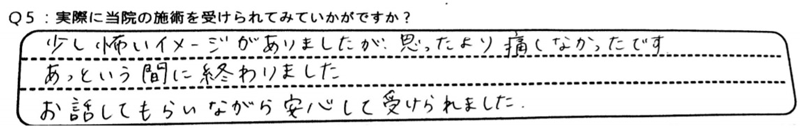 Q5：実際に当院の施術を受けられてみていかがですか？
少し怖いイメージがありましたが、思ったより痛くなかったです
あっという間に終わりました
お話してもらいながら安心して受けられました.